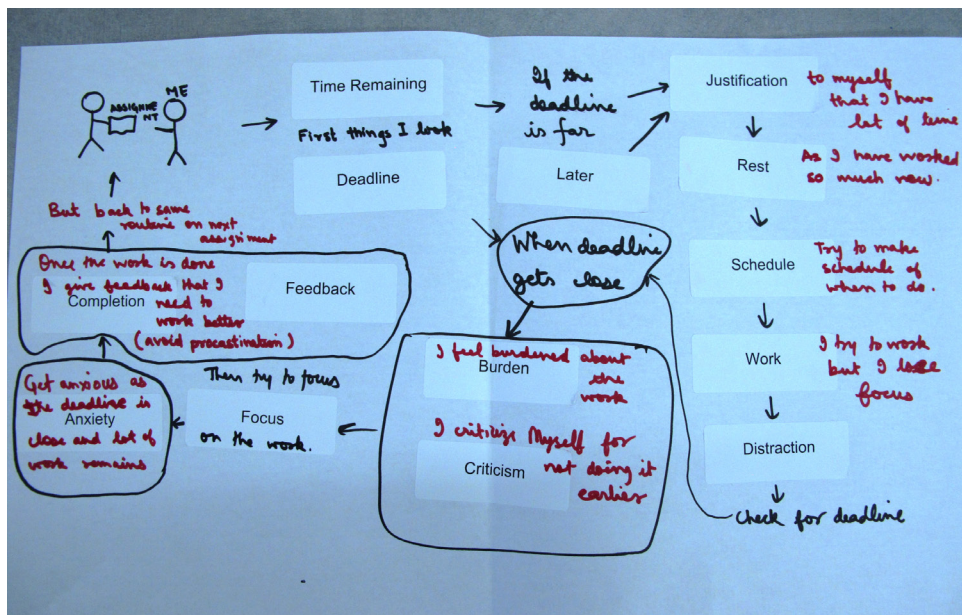 ME
ASSIGNME
NT
Time Remaining
First things I look
Deadline
If the
deadline
is far
Later
Justification
to myself
that I have
lot of time
Rest
As I have worked
so much now.
Schedule
Try to make
schedule of
when to do.
Work
I try to work
but I lose
focus
Distraction
Check for deadline
When deadline
gets close
I feel burdened about
Burden
the
work
I criticize Myself for
Criticism
not doing it
earlier
Then try to focus
Focus
on the work.
Get anxious as
the deadline is
Anxiety
close and lot of
work remains
Once the work is done
I give feedback that I
Completion
Feedback
need to
work better
(avoid procastination)
But back to same
routine on next
assignment